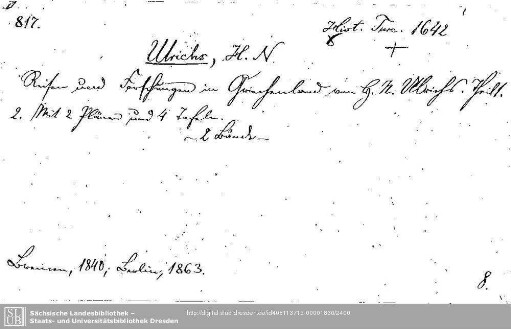 817.
Hist. Turc. 1642
Ulrichs, H. N
Reisen und Forschungen in Griechenland von H. N. Ulrichs. Theil 1.
2. Mit 2 Plänen und 4 Tafeln.
– 2 Bände –
Bremen, 1840; Berlin, 1863.
8.
SLUB
Sächsische Landesbibliothek –
Staats- und Universitätsbibliothek Dresden